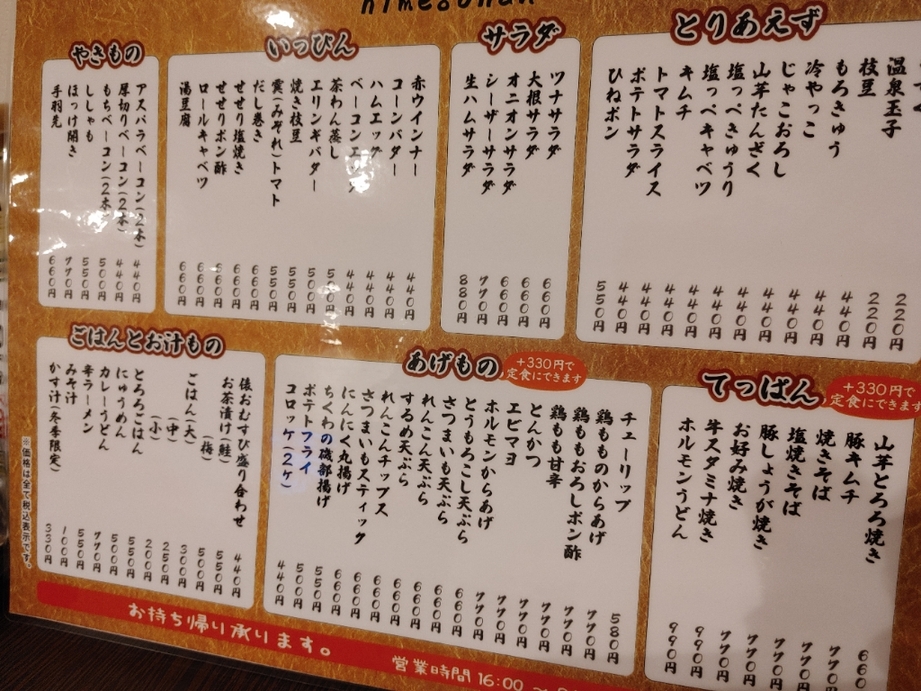 himegohan
とりあえず
温泉玉子 220円
枝豆 220円
もろきゅう 440円
冷やっこ 440円
じゃこおろし 440円
山芋たんざく 440円
塩っぺきゅうり 440円
塩っぺキャベツ 440円
キムチ 440円
トマトスライス 440円
ポテトサラダ 440円
ひねポン 550円
サラダ
ツナサラダ 660円
大根サラダ 660円
オニオンサラダ 660円
シーザーサラダ 770円
生ハムサラダ 880円
いっぴん
赤ウインナー 440円
コーンバター 440円
ハムエッグ 440円
ベーコンエッグ 440円
茶わん蒸し 550円
エリンギバター 550円
焼き枝豆 550円
霙(みぞれ)トマト 550円
だし巻き 660円
せせり塩焼き 660円
せせりポン酢 660円
ロールキャベツ 660円
湯豆腐 660円
やきもの
アスパラベーコン(2本) 440円
厚切りベーコン(2本) 440円
もちベーコン(2本) 550円
ししゃも 550円
ほっけ開き 770円
手羽先 660円
てっぱん
+330円で
定食にできます
山芋とろろ焼き 660
豚キムチ 770円
焼きそば 770円
塩焼きそば 770円
豚しょうが焼き 770円
お好み焼き 770円
牛スタミナ焼き 990円
ホルモンうどん 990円
あげもの
+330円で
定食にできます
チューリップ 580円
鶏もものからあげ 770円
鶏ももおろしポン酢 770円
鶏もも甘辛 770円
とんかつ 770円
エビマヨ 770円
ホルモンからあげ 770円
とうもろこし天ぷら 660円
さつまいも天ぷら 660円
れんこん天ぷら 660円
するめ天ぷら 660円
れんこんチップス 660円
さつまいもスティック 660円
にんにく丸揚げ 660円
ちくわの磯部揚げ 550円
ポテトフライ 550円
コロッケ(2ケ) 440円
ごはんとお汁もの
俵おむすび盛り合わせ 440円
お茶漬け(鮭) 550円
(梅) 500円
ごはん(大) 300円
(中) 250円
(小) 200円
とろろごはん 550円
にゅうめん 500円
カレーうどん 770円
辛ラーメン 550円
みそ汁 100円
かす汁(冬季限定) 330円
※価格は全て税込表示です。
お持ち帰り承ります。
営業時間 16:00 ～